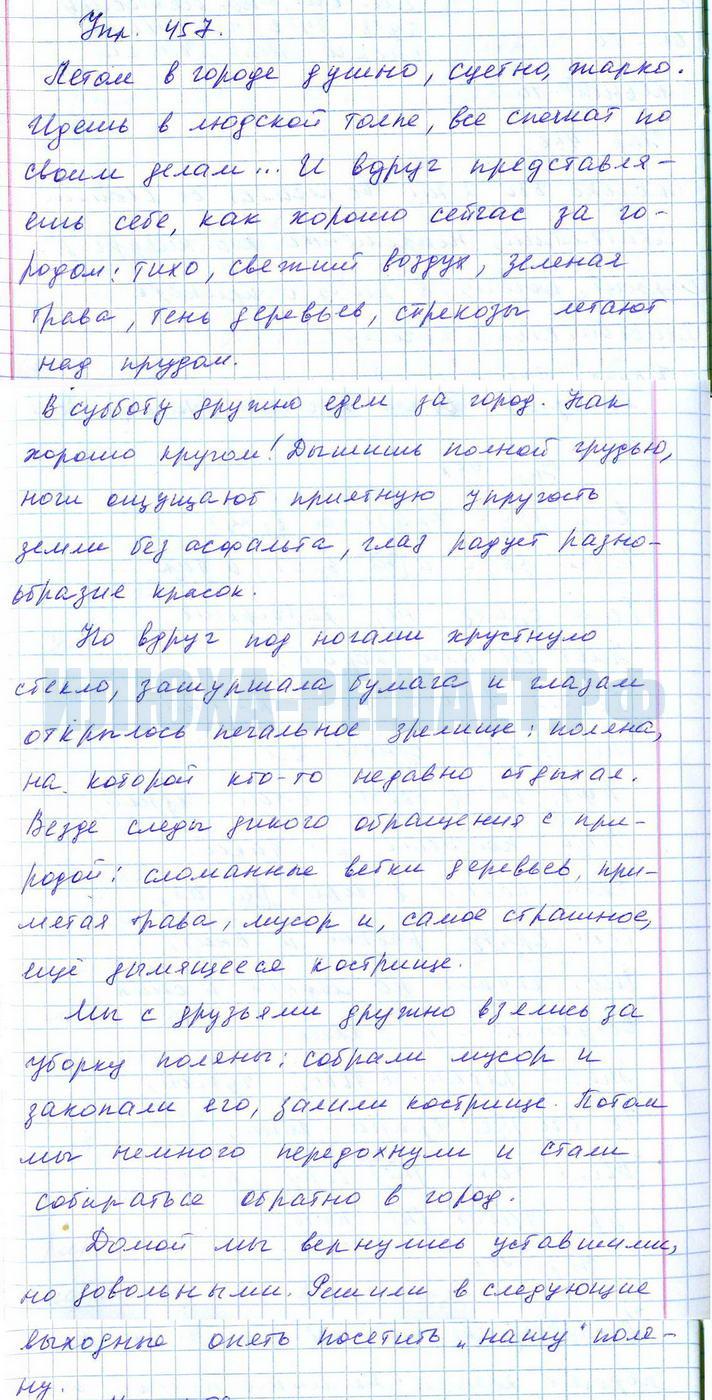 Упр. 457.
Летом в городе душно, суетно, жарко.
Идешь в людской толпе, все спешат по
своим делам... И вдруг представля-
ешь себе, как хорошо сейчас за го-
родом: тихо, свежий воздух, зеленая
трава, тень деревьев, стрекозы летают
над прудом.
В субботу дружно едем за город. Как
хорошо кругом! Дышишь полной грудью,
ноги ощущают приятную упругость
земли без асфальта, глаз радует разно-
образие красок.
Но вдруг под ногами хрустнуло
стекло, зашуршала бумага и глазам
ИЛЮХА-РЕШАЕТ.РФ
открылось печальное зрелище: поляна,
на которой кто-то недавно отдыхал.
Везде следы дикого обращения с при-
родой: сломанные ветки деревьев, при-
мятая трава, мусор и, самое страшное,
ещё дымящееся кострище.
Мы с друзьями дружно взялись за
уборку поляны: собрали мусор и
закопали его, залили кострище. Потом
мы немного передохнули и стали
собираться обратно в город.
Домой мы вернулись уставшими,
но довольными. Решили в следующие
выходные опять посетить "нашу" поля-
ну.